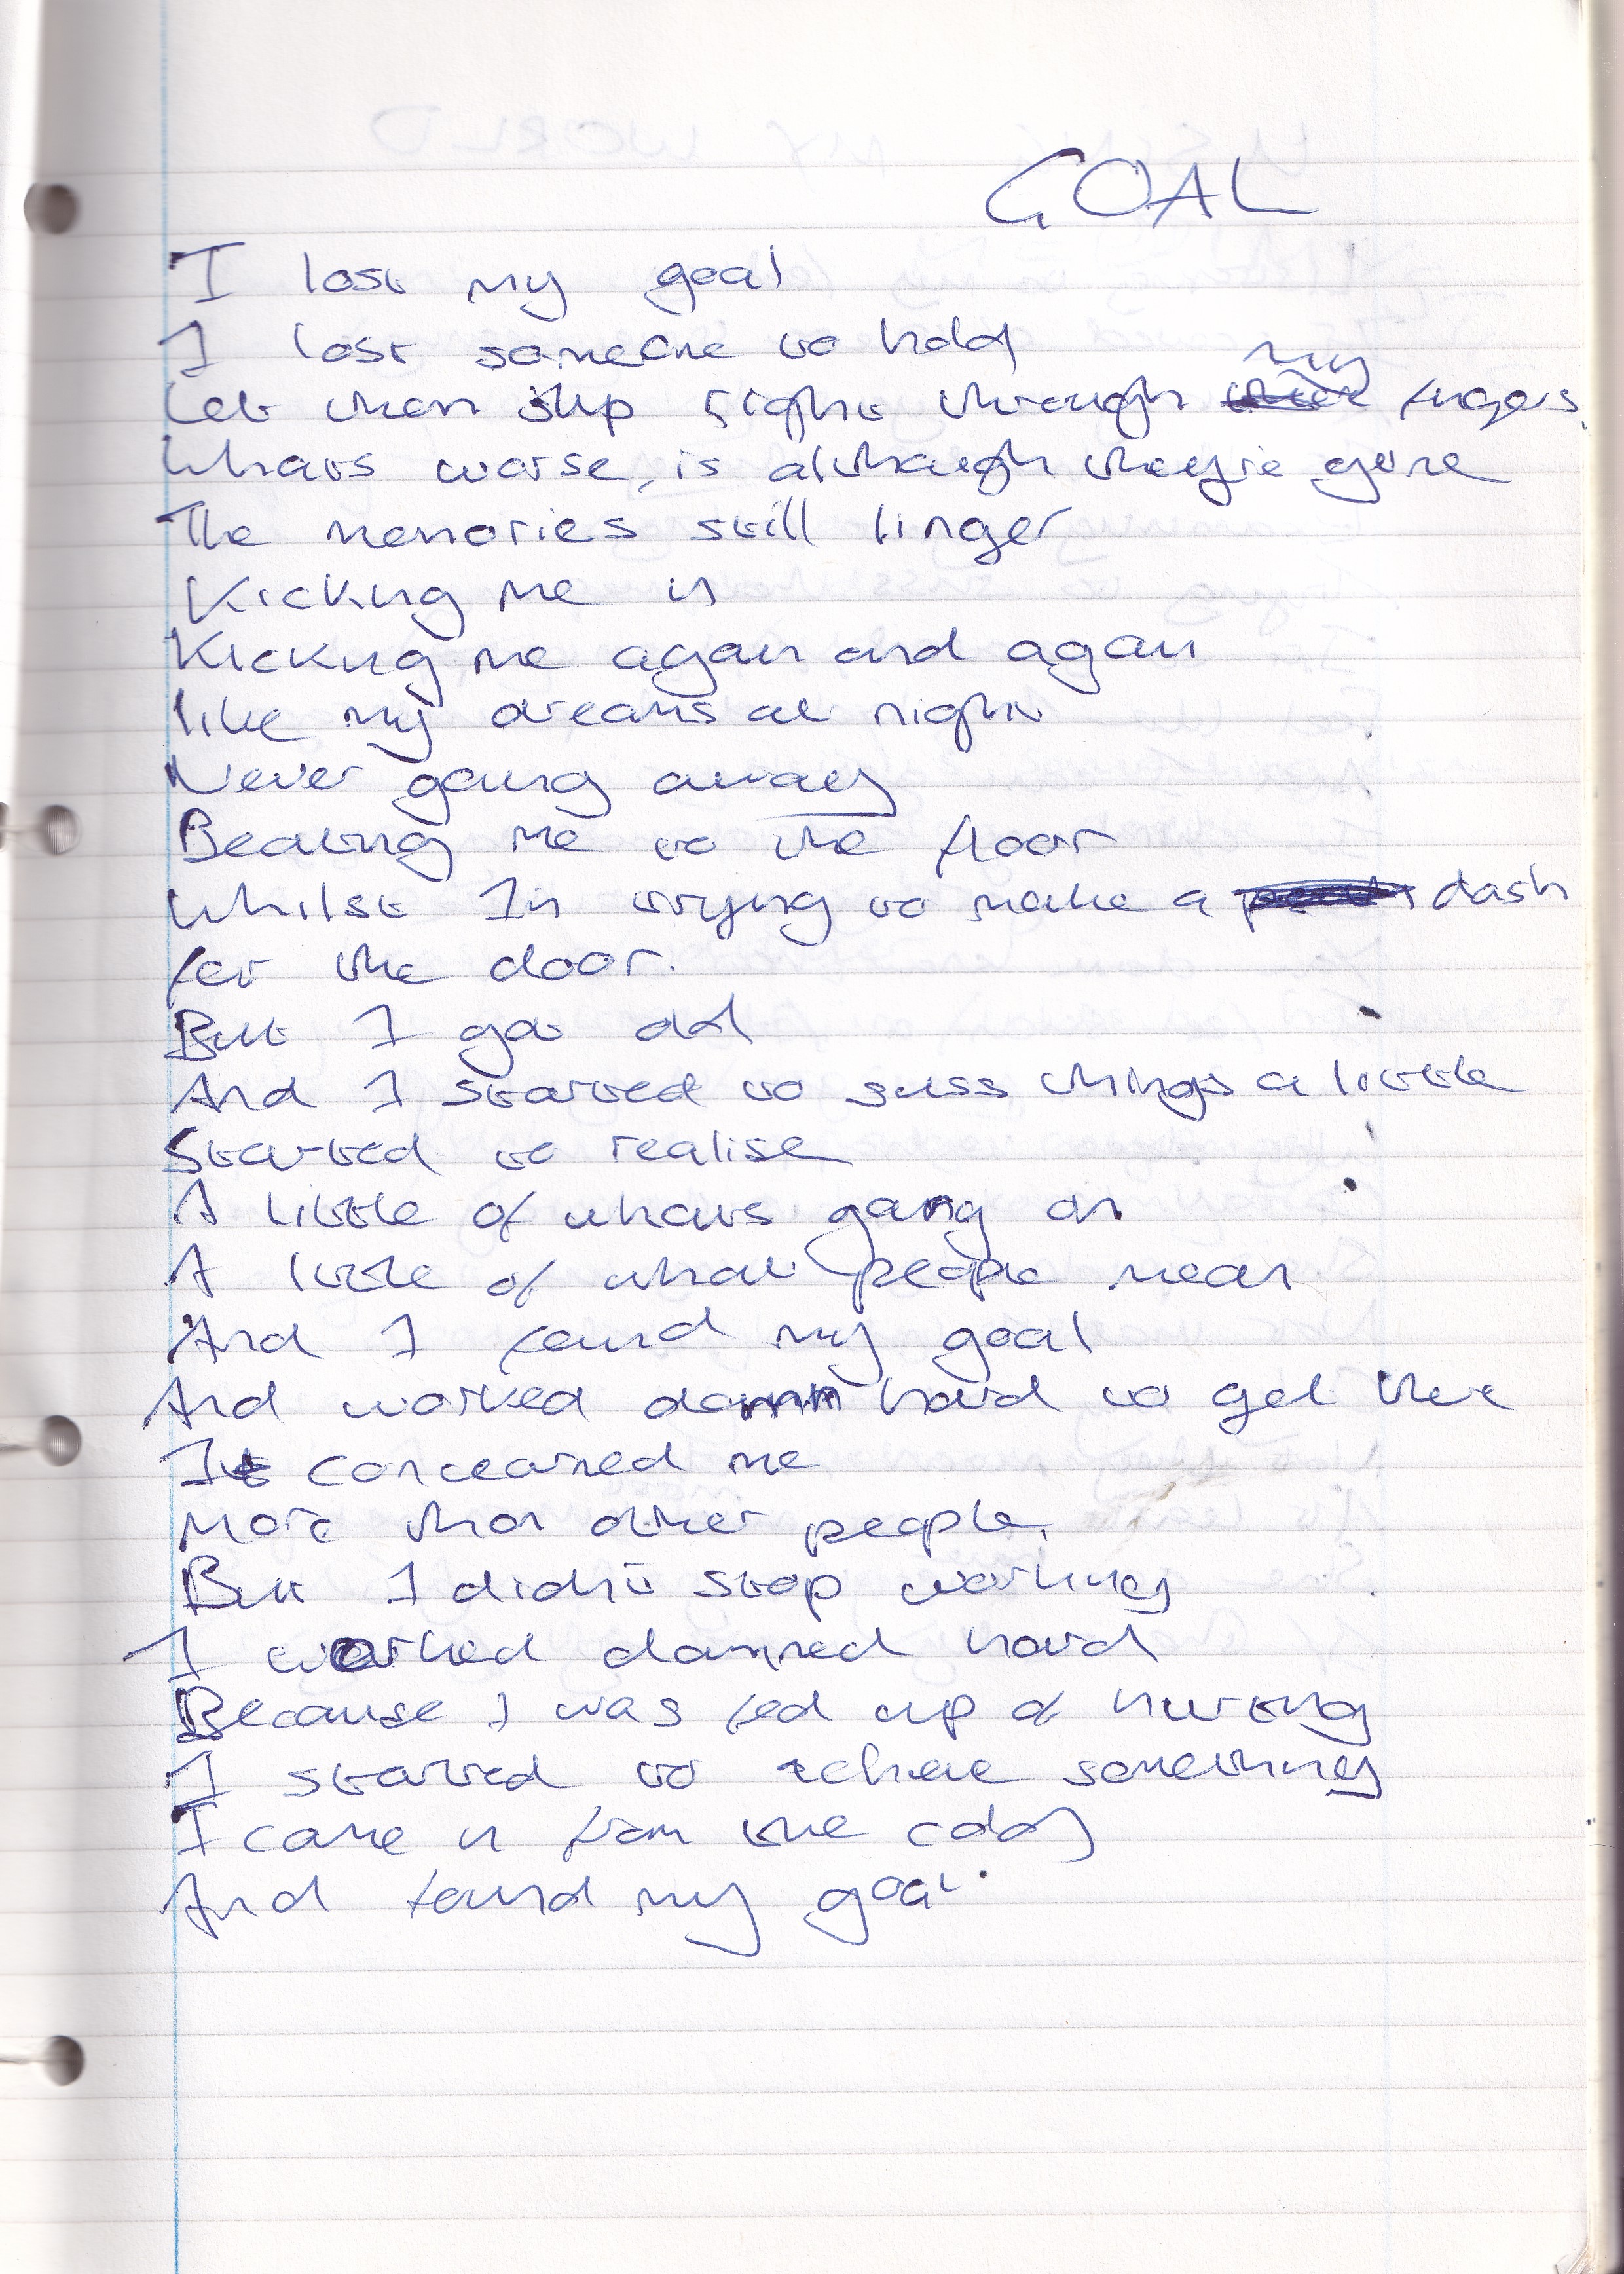 GOAL
I lost my goal
I lost someone to hold
Let them slip right through my fingers.
Whats worse, is although they're gone
The memories still linger
Kicking me in
Kicking me again and again
like my dreams at night
Never going away
Beating me to the floor
Whilst Im trying to make a dash
for the door.
But I got old
And I started to suss things a little
Started to realise
A little of whats going on
A little of what people mean
And I found my goal
And worked damn hard to get there
It concearned me
More than other people,
But I didn't stop working
I worked damned hard
Because I was fed up of hurting
I started to achieve something
I came in from the cold
And found my goal.